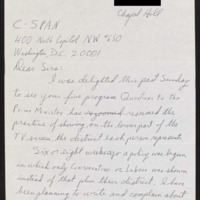 Chapel Hill
C-SPAN
400 North Capitol NW #650
Washington D.C. 20001
Dear Sirs:
I was delighted this past Sunday
to see your fine program Questions to the
Prime Minister has resumed the
practice of showing, on the lower part of the
TV screen, the district each person represents.
Six or eight weeks ago a policy was begun
in which only Conservative or Labor was shown
instead of that plus their district. I have
been planning to write and complain about